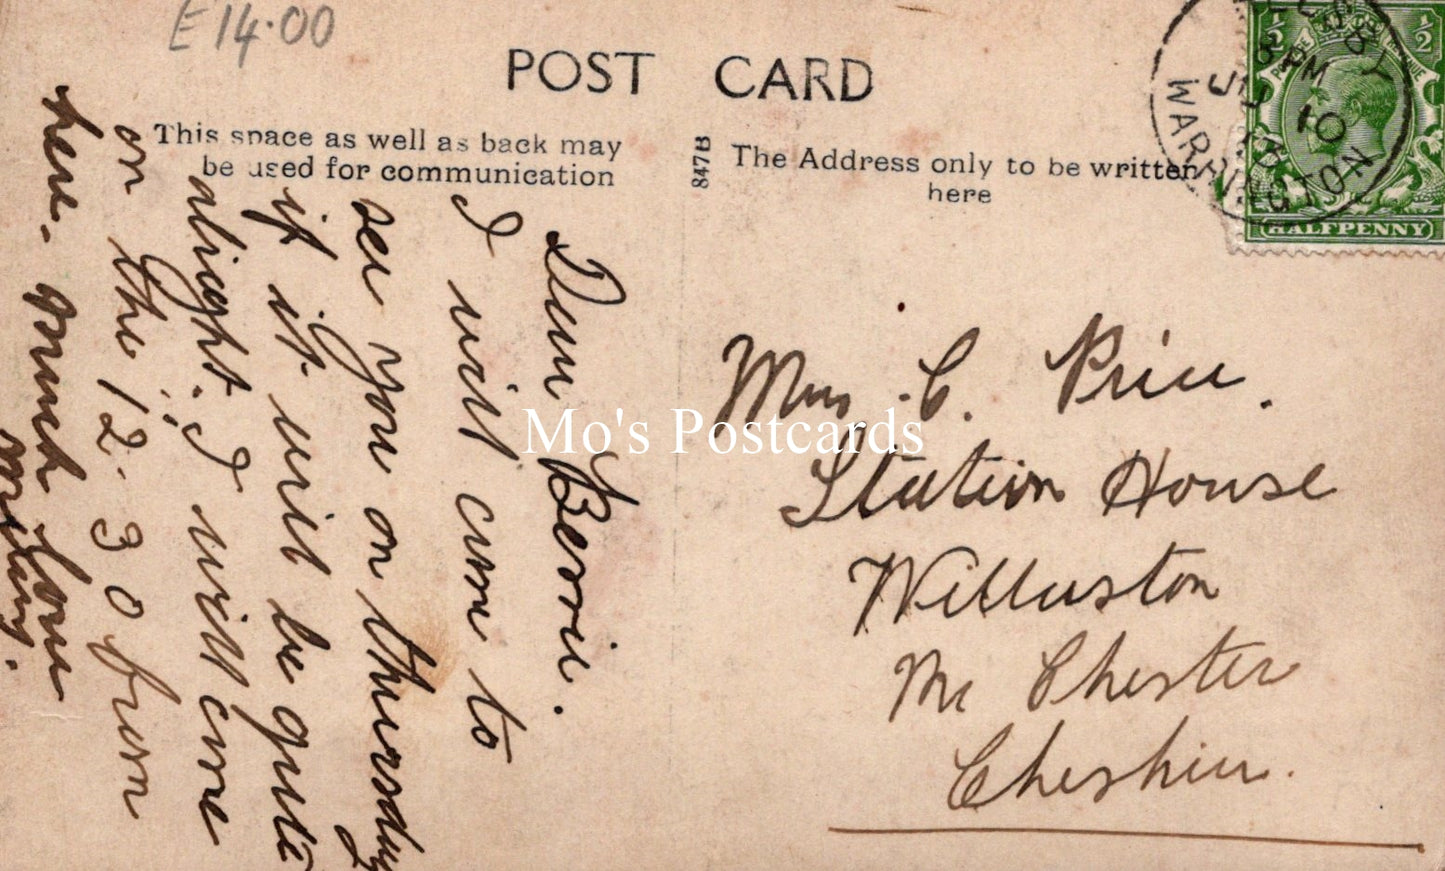 E14.00
POST CARD
This space as well as back may
be used for communication
847B
The Address only to be written
here
WARRINGTON
8 PM
JU 10
13
½ ½
HALFPENNY
Dear Bessie.
I will come to
see you on thursday
if it will be quite
alright. I will come
on the 12-30 from
here. much love
Milly.
Mrs. C. Price.
Station House
Willaston
Nr Chester
Cheshire.
Mo's Postcards